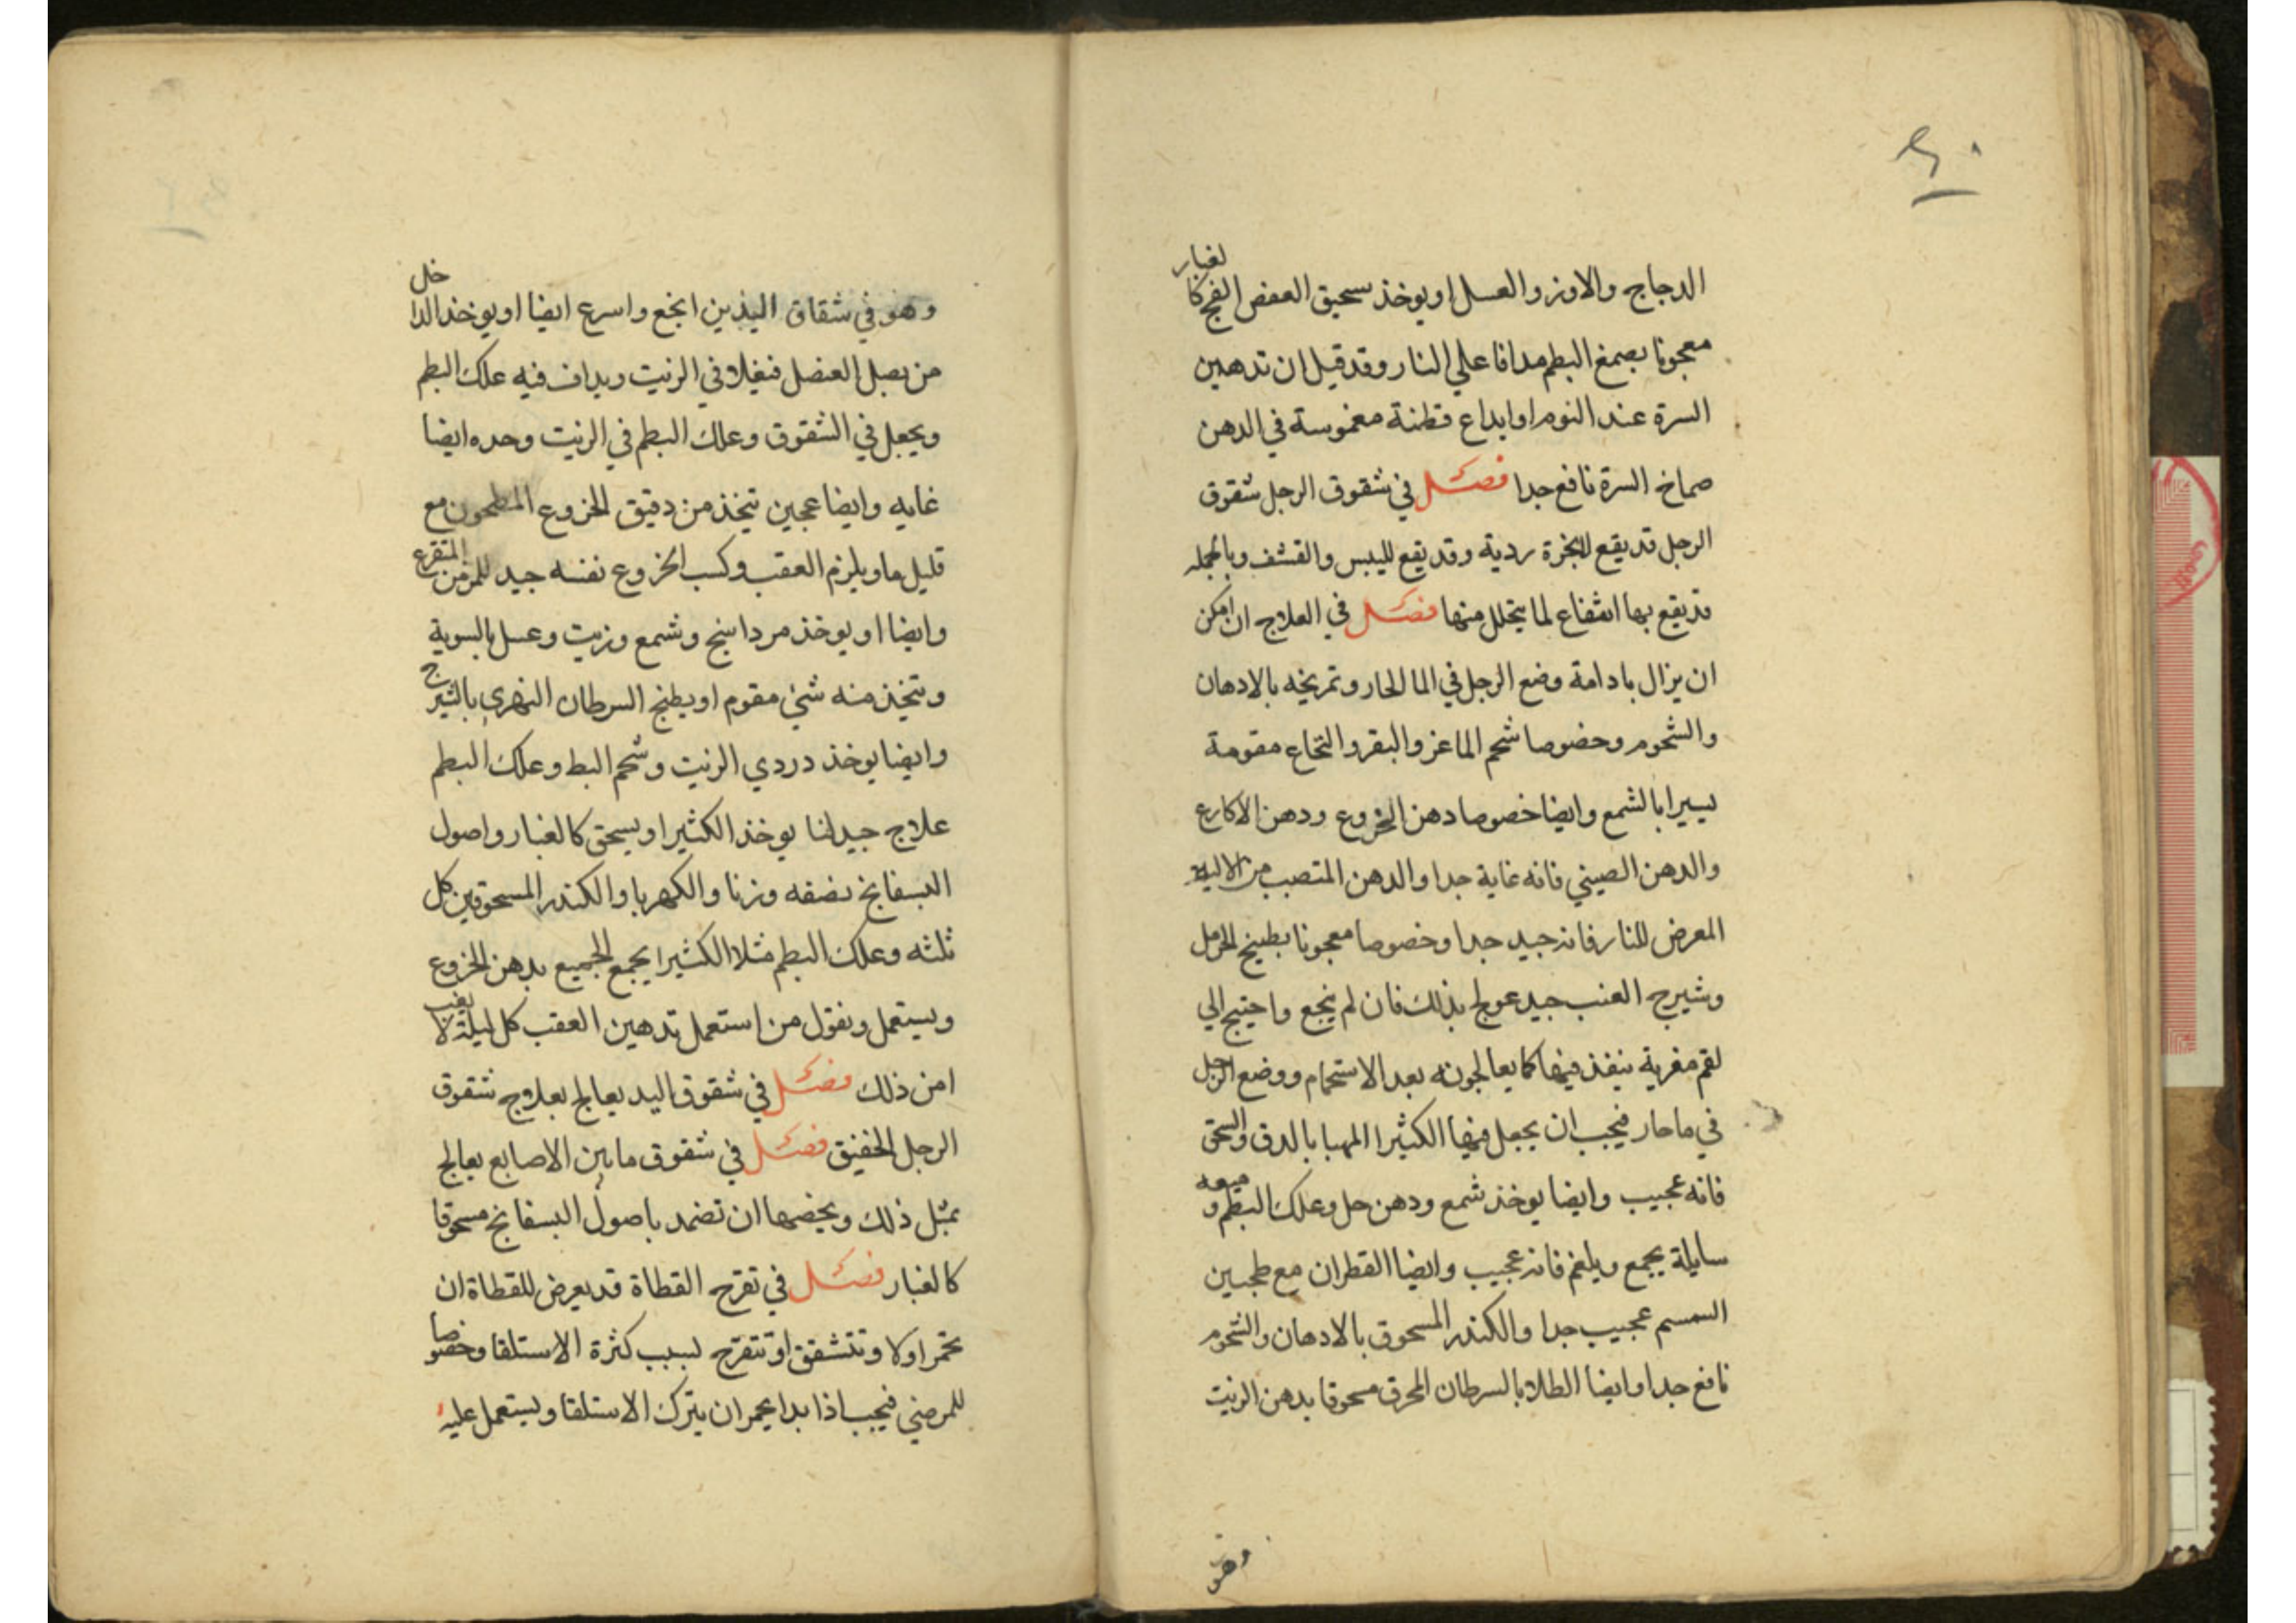 الدجاج والاوز والعسل او يوخذ سحيق العفص الفج كا لغبار
معجونا بصمغ البطم مدافا علي النار وقد قيل ان تدهين
السرة عند النوم او ايداع قطنة مغموسة في الدهن
صماخ السرة نافع جدا فصل في شقوق الرجل شقوق
الرجل قد يقع لابخرة ردية وقد يقع لليبس والقشف وبالجمله
قد يقع بها انتفاع لما يتحلل منها فصل في العلاج ان امكن
ان يزال بادامة وضع الرجل في الما الحار وتمريخه بالادهان
والشحوم وخصوصا شحم الماعز والبقر والنخاع مقومة
يسيرا بالشمع وايضا خصوصا دهن الخروع ودهن الاكارع
والدهن الصيني فانه غاية جدا والدهن المتصبب من الالية
المعرض للنار فانه جيد جدا وخصوصا معجونا بطبيخ الخرمل
وشيرج العنب جيد عولج بذلك فان لم ينجع واحتيج الي
لقم مغرية ينفذ فيها كما يعالجونه بعد الاستحمام ووضع الرجل
في ما حار فيجب ان يجعل فيها الكثيرا المهبا بالدق والسحق
فانه عجيب وايضا يوخذ شمع ودهن حل وعلك البطم و ميعه
سايلة يجمع ويلغم فانه عجيب وايضا القطران مع طحين
السمسم عجيب جدا والكندر المسحوق بالادهان والشحوم
نافع جدا وايضا الطلا بالسرطان المحرق مسحوقا بدهن الزيت
وهو
وهو في شقاق اليدين انجع واسرع ايضا او يوخذ الدا خل
من بصل العنصل فيغلا في الزيت ويداف فيه علك البطم
ويجعل في الشقوق وعلك البطم في الزيت وحده ايضا
غايه وايضا عجين تيخذ من دقيق الخروع المطحون مع
قليل ما ويلزم العقب وكسب الخروع نفسه جيد للمزمن المتقرع
وايضا او يوخذ مرداسنج وشمع وزيت وعسل بالسوية
وتيخذ منه شي مقوم او يطبخ السرطان النهري بالشير ج
وايضا يوخذ دردي الزيت وشحم البط وعلك البطم
علاج جيد لنا يوخذ الكثيرا ويسحق كالغبار واصول
البسفايج نصفه وزنا والكهربا والكندر المسحوقين كل
ثلثه وعلك البطم مثلا الكثيرا يجمع الجميع بدهن الخروع
ويستعمل ونقول من استعمل تدهين العقب كل ليلة لا
امن ذلك فصل في شقوق اليد يعالج بعلاج شقوق
الرجل الخفيق فصل في شقوق ما بين الاصابع يعالج
بمثل ذلك ويخصها ان تضمد باصول البسفايج مسحوقا
كالغبار فصل في تقرح القطاة قد يعرض للقطاة ان
تحمر اولا وتتشقق او تتقرح لسبب كثرة الاستلقا وخصو صا
للمرضي فيجب اذا بدا يحمر ان يترك الاستلقا ويستعمل عليه